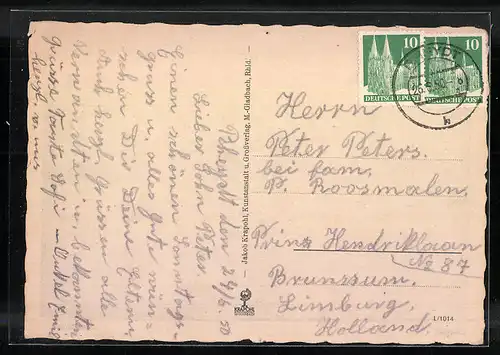 Rheydt den 24/6. 50
Lieber Sohn Peter
Einen schönen Sonntags-
gruss u. alles gute wün-
schen Dir Deine Eltern,
Auch herzl. Grüssen alle
Verwandten u. bekannten
Grüsse Tante Sofi u Onkel Emil
herzl. v. uns
Jakob Krapohl, Kunstanstalt u. Großverlag, M.-Gladbach, Rhld.
KRAPOHL
10
DEUTSCHE POST
10
DEUTSCHE POST
b
Herrn
Peter Peters.
bei fam.
P. Roosmalen.
Prins Hendriklaan
No 87
Brunssum.
Limburg.
Holland.
L/1014